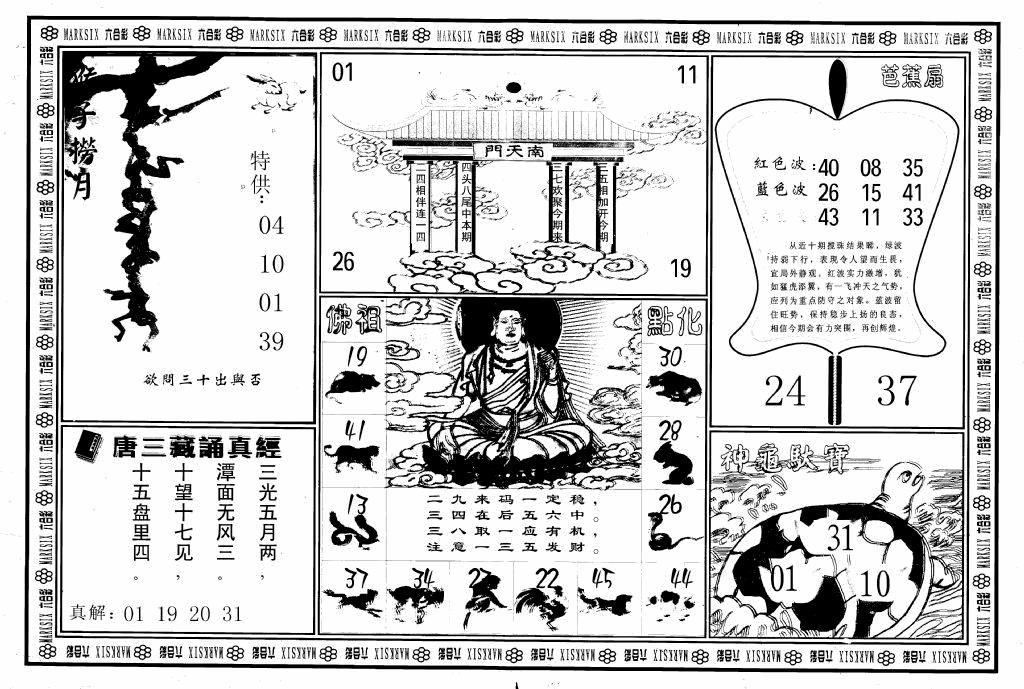 MARKSIX 六合彩 MARKSIX 六合彩 MARKSIX 六合彩 MARKSIX 六合彩 MARKSIX 六合彩 MARKSIX 六合彩 MARKSIX 六合彩 MARKSIX 六合彩 MARKSIX 六合彩 MARKSIX 六合彩
猴子捞月
特供：
04
10
01
39
欲問三十出與否
唐三藏誦真經
三光五月两，
潭面无风三。
十望十七见，
十五盘里四。
真解：01 19 20 31
01
11
南天門
二四相伴连一四
四头八尾中本期
三七欢聚今期来
二五相加开今期
26
19
佛祖
點化
19
30
41
28
13
26
二九来码一定稳，
三四在后五六中。
三八取一应有机，
注意一三五发财。
37
34
22
45
44
芭蕉扇
紅色波：40 08 35
藍色波 26 15 41
43 11 33
从近十期搅珠结果睇，绿波
持弱下行，表現令人望而生畏，
宜局外静观。红波实力激增，犹
如猛虎添翼，有一飞冲天之气势，
应列为重点防守之对象。蓝波留
住旺势，保持稳步上扬的良态，
相信今期会有力突围，再创辉煌。
24
37
神龜馱寶
31
01
10